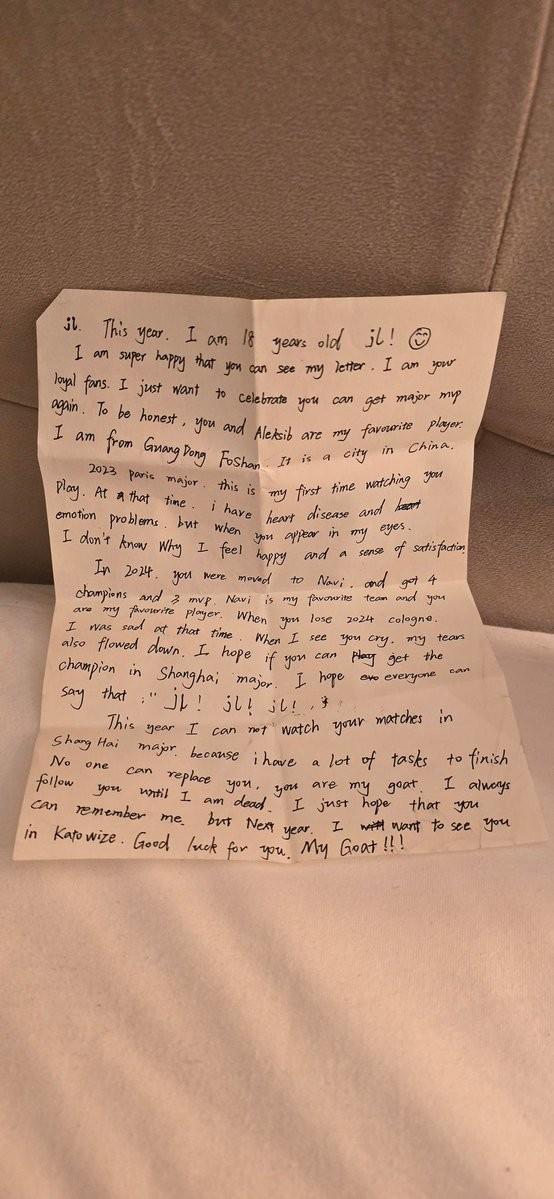 jl. This year. I am 18 years old jl! ☺
I am super happy that you can see my letter. I am your
loyal fans. I just want to celebrate you can get major mvp
again. To be honest, you and Aleksib are my favourite player.
I am from GuangDong FoShan. It is a city in China.
2023 paris major. this is my first time watching you
play. At that time. i have heart disease and heart
emotion problems. but when you appear in my eyes.
I don't know Why I feel happy and a sense of satisfaction
In 2024. you were moved to Navi. and got 4
champions and 3 mvp. Navi is my favourite team and you
are my favourite player. When you lose 2024 cologne.
I was sad at that time. When I see you cry. my tears
also flowed down. I hope if you can play get the
champion in Shanghai major. I hope eve everyone can
say that :" jl! jl! jl! "
This year I can not watch your matches in
ShangHai major. because i have a lot of tasks to finish
No one can replace you, you are my goat. I always
follow you until I am dead. I just hope that you
can remember me. but Next year. I will want to see you
in Katowize. Good luck for you. My Goat!!!